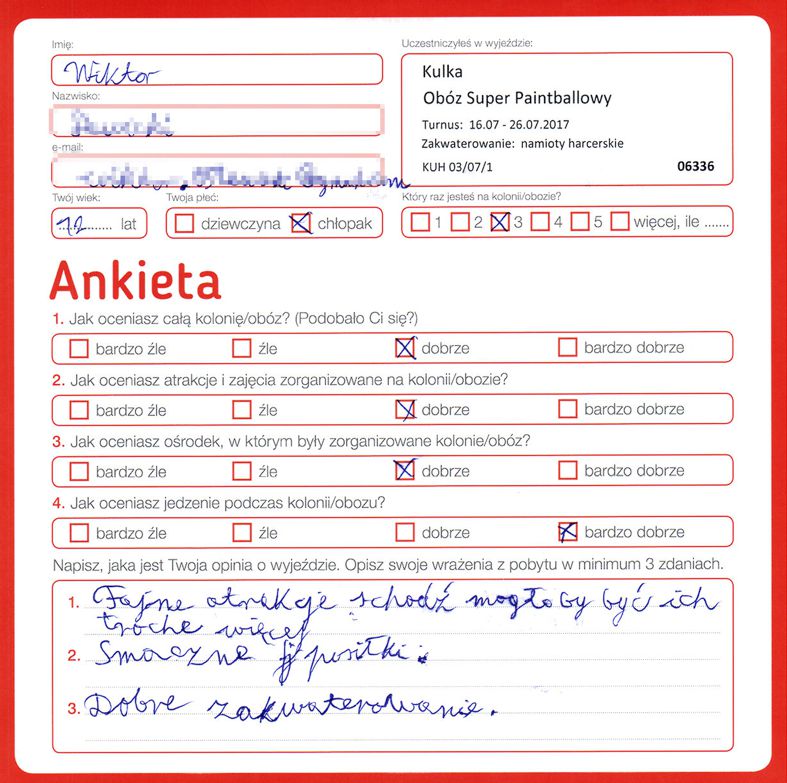 Imię:
Wiktor
Nazwisko:
e-mail:
Twój wiek:
12 lat
Twoja płeć:
dziewczyna chłopak
Uczestniczyłeś w wyjeździe:
Kulka
Obóz Super Paintballowy
Turnus: 16.07 - 26.07.2017
Zakwaterowanie: namioty harcerskie
KUH 03/07/1 06336
Który raz jesteś na kolonii/obozie?
1 2 3 4 5 więcej, ile .......
Ankieta
1. Jak oceniasz całą kolonię/obóz? (Podobało Ci się?)
bardzo źle źle dobrze bardzo dobrze
2. Jak oceniasz atrakcje i zajęcia zorganizowane na kolonii/obozie?
bardzo źle źle dobrze bardzo dobrze
3. Jak oceniasz ośrodek, w którym były zorganizowane kolonie/obóz?
bardzo źle źle dobrze bardzo dobrze
4. Jak oceniasz jedzenie podczas kolonii/obozu?
bardzo źle źle dobrze bardzo dobrze
Napisz, jaka jest Twoja opinia o wyjeździe. Opisz swoje wrażenia z pobytu w minimum 3 zdaniach.
1. Fajne atrakcje schodź mogłoby być ich
troche więcej
2. Smaczne posiłki.
3. Dobre zakwaterowanie.